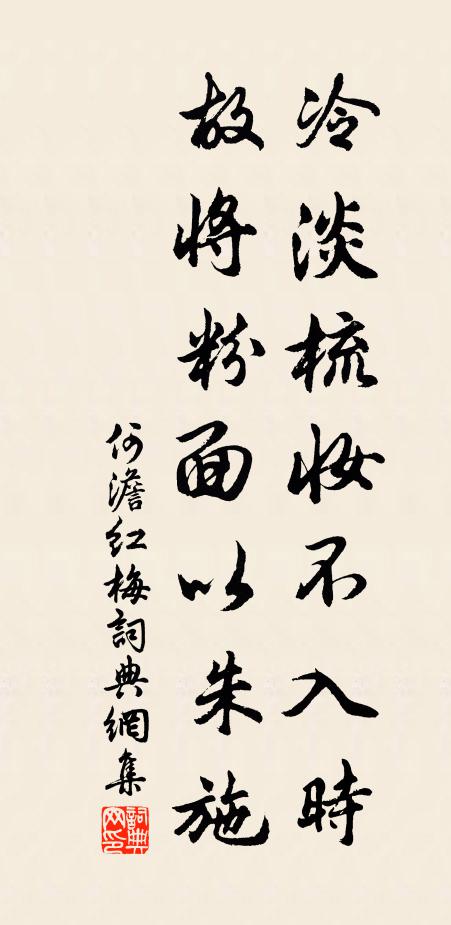 冷淡梳妝不入時
故將粉面以朱施
何澹紅梅詞典網集
詞典網印